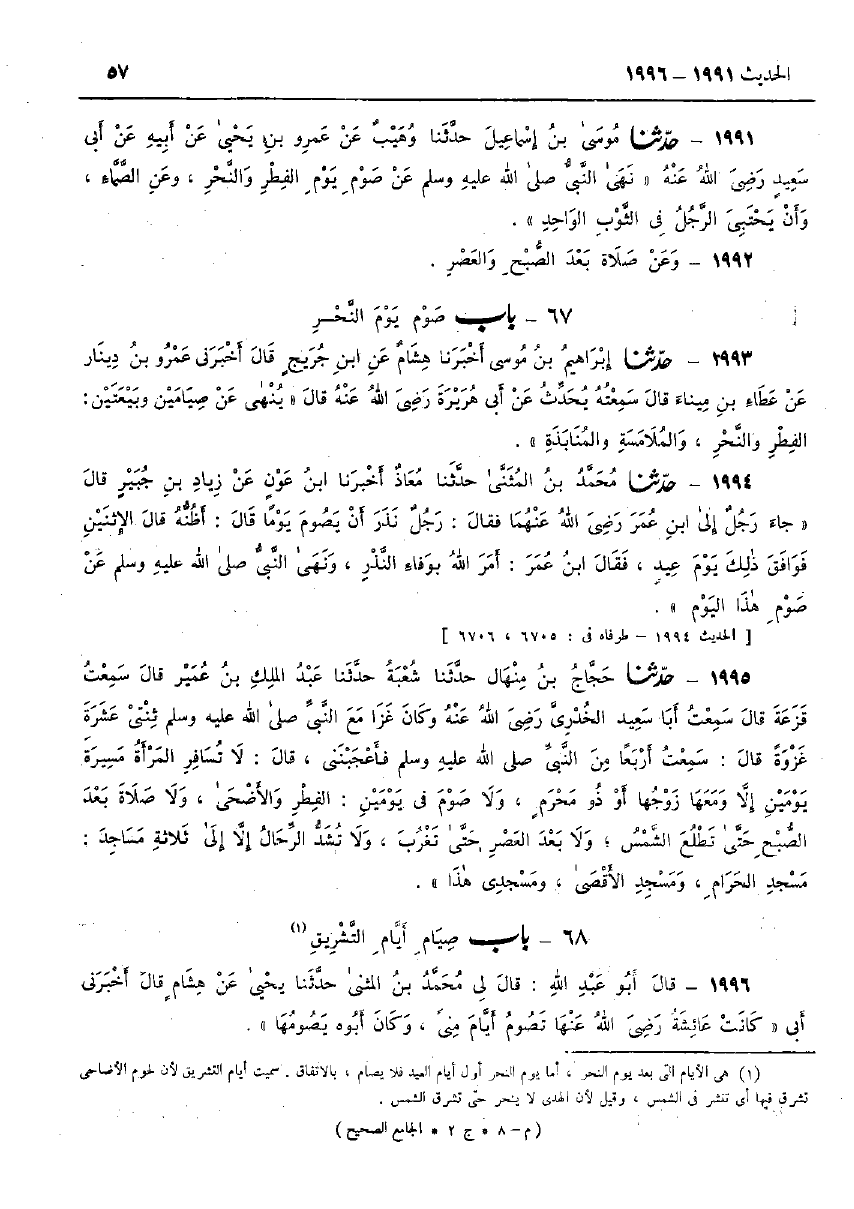 الحديث ١٩٩١ – ١٩٩٦
٥٧
١٩٩١ – حدّثنا مُوسَىٰ بنُ إسْماعِيلَ حدَّثَنا وُهَيْبٌ عَنْ عَمرِو بنِ يَحْيىٰ عَنْ أَبِيهِ عَنْ أَبى
سَعِيدٍ رَضِىَ اللهُ عَنْهُ « نَهَىٰ النَّبىُّ صلىٰ الله عليهِ وسلم عَنْ صَوْمِ يَوْمِ الفِطْرِ وَالنَّحْرِ ، وعَنِ الصَّمَّاءِ ،
وَأنْ يَحْتَبِىَ الرَّجُلُ فِى الثَّوْبِ الوَاحِدِ » .
١٩٩٢ – وَعَنْ صَلَاة بَعْدَ الصُّبْحِ وَالعَصْرِ .
٦٧ – باب صَوْمِ يَوْمَ النَّحْرِ
٢٩٩٣ – حدّثنا إِبْرَاهيمُ بنُ مُوسى أَخْبَرَنا هِشَامٌ عَنِ ابنِ جُرَيجٍ قَالَ أَخْبَرَنى عَمْرُو بنُ دِينَار
عَنْ عَطَاءِ بنِ مِيناءَ قالَ سَمِعْتُهُ يُحَدِّثُ عَنْ أَبى هُرَيْرَةَ رَضِىَ اللهُ عَنْهُ قالَ « يُنْهَى عَنْ صِيَامَيْنِ وبَيْعَتَيْنِ :
الفِطْرِ والنَّحْرِ ، وَالمُلَامَسَةِ والمُنَابَذَةِ » .
١٩٩٤ – حدّثنا مُحَمَّدُ بنُ المُثَنَّىٰ حدَّثَنا مُعَاذٌ أَخْبَرَنا ابنُ عَوْنٍ عَنْ زِيادِ بنِ جُبَيْرٍ قالَ
« جاءَ رَجُلٌ إِلىٰ ابنِ عُمَرَ رَضِىَ اللهُ عَنْهُمَا فقالَ : رَجُلٌ نَذَرَ أَنْ يَصُومَ يَوْمًا قَالَ : أَظُنُّهُ قالَ الإِثنَيْنِ
فَوَافَقَ ذٰلِكَ يَوْمَ عِيدٍ ، فَقَالَ ابنُ عُمَرَ : أَمَرَ اللهُ بوَفاءِ النَّذْرِ ، وَنَهَىٰ النَّبىُّ صلىٰ الله عليهِ وسلم عَنْ
صَوْمِ هٰذَا اليَوْمِ » .
[ الحديث ١٩٩٤ – طرفاه فى : ٦٧٠٥ ، ٦٧٠٦ ]
١٩٩٥ – حدّثنا حَجَّاجُ بنُ مِنْهَال حدَّثَنا شُعْبَةُ حدَّثَنا عَبْدُ المَلِكِ بنُ عُمَيْرٍ قالَ سَمِعْتُ
قَزَعَةَ قالَ سَمِعْتُ أَبَا سَعِيد الخُدْرِىَّ رَضِىَ اللهُ عَنْهُ وكانَ غَزَا مَعَ النَّبىِّ صلىٰ الله عليه وسلم ثِنْتَىْ عَشْرَةَ
غَزْوَةً قالَ : سَمِعْتُ أَرْبَعًا مِنَ النَّبىِّ صلى الله عليهِ وسلم فأَعْجَبْنَنى ، قالَ : لَا تُسَافِرِ المَرْأَةُ مَسِيرَةَ
يَوْمَينِ إِلَّا وَمَعَهَا زَوْجُها أَوْ ذُو مَحْرَمٍ ، وَلَا صَوْمَ فى يَوْمَيْنِ : الفِطْرِ وَالأَضْحَىٰ ، وَلَا صَلَاةَ بَعْدَ
الصُّبْحِ حَتَّىٰ تَطْلُعَ الشَّمْسُ ؛ وَلَا بَعْدَ العَصْرِ حَتَّىٰ تَغْرُبَ ، وَلَا تُشَدُّ الرِّحَالُ إِلَّا إِلَىٰ ثَلاثةِ مَسَاجِدَ :
مَسْجِدِ الحَرَامِ ، وَمَسْجِدِ الأَقْصَىٰ ، ومَسْجِدِى هٰذَا » .
٦٨ – باب صِيَامِ أَيَّامِ التَّشْرِيقِ (١)
١٩٩٦ – قالَ أَبُو عَبْدِ اللهِ : قالَ لِى مُحَمَّدُ بنُ المثنىٰ حدَّثَنا يحْيىٰ عَنْ هِشَامٍ قالَ أَخْبَرَنى
أَبى « كَانَتْ عَائِشَةُ رَضِىَ اللهُ عَنْهَا تَصُومُ أَيَّامَ مِنىً ، وَكَانَ أَبُوه يَصُومُهَا » .
(١) هى الأيام التى بعد يوم النحر ، أما يوم النحر أول أيام العيد فلا يصام ، بالاتفاق . سميت أيام التشريق لأن لحوم الأضاحى
تشرق فيها أى تنشر فى الشمس ، وقيل لأن الهدى لا ينحر حتى تشرق الشمس .
( م – ٨ * ج ٢ * الجامع الصحيح )